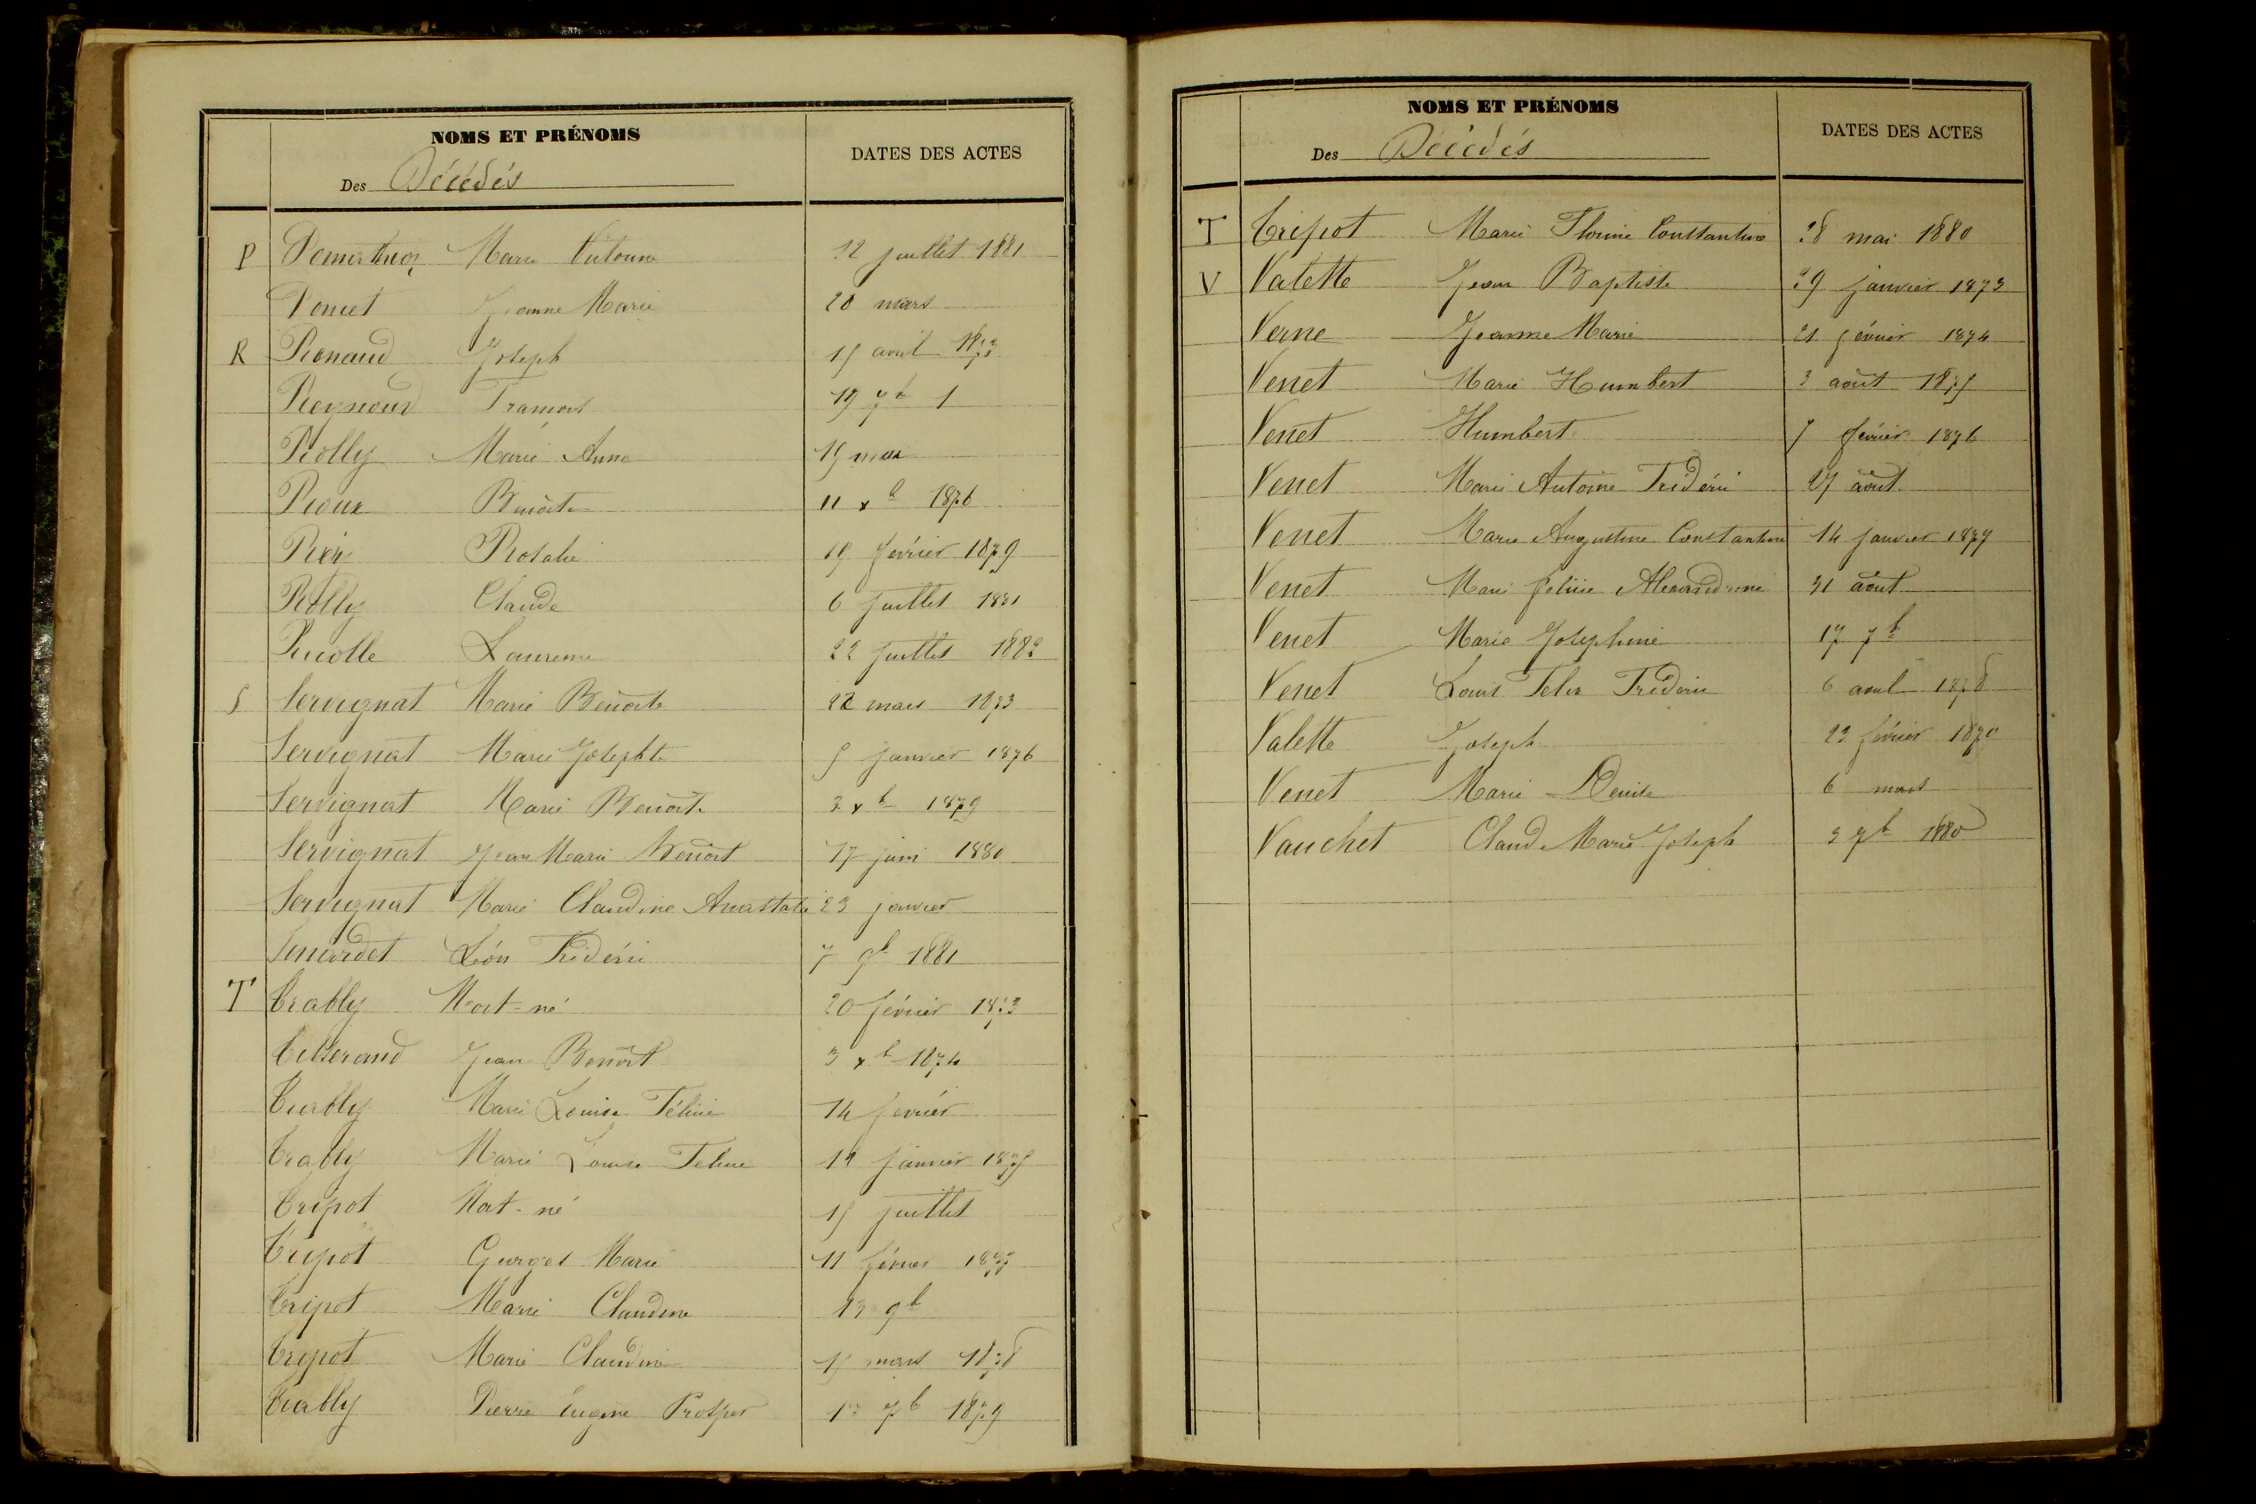 NOMS ET PRÉNOMS
Des Décédés
DATES DES ACTES
P Marie 12 juillet 1881
Poncet Jeanne Marie 20 mars
R Renaud Joseph 15 avril
19 7b 1
Rolly Marie Anna 19 mai
Roux Benoite 11 xb 1876
Rosalie 19 février 1879
Rolly Claude 6 juillet 1881
22 juillet 1882
S Servignat Marie Benoite 22 mars 1873
Servignat Marie Josephte 5 janvier 1876
Servignat Marie Benoite 3 xb 1879
Servignat Jean Marie Benoit 17 juin 1880
Servignat Marie Claudine Anastasie 23 janvier
Léon Frédéric 7 9b 1881
T Trably Mort-né 20 février 1873
Tisserand Jean Benoit 3 xb 1874
Marie Louise Féline 14 février
Trably Marie Louise Feline 12 janvier 1875
Tripot Mort-né 15 juillet
Tripot Marie 11 février
Tripot Marie Claudine 13 9b
Tripot Marie Claudine 15 mars 1878
Trably Pierre Eugène Prosper 1er 7b 1879
NOMS ET PRÉNOMS
Des Décédés
DATES DES ACTES
T Tripot Marie Constantine 28 mai 1880
V Valette Jean Baptiste 29 janvier 1873
Verne Jeanne Marie 21 février 1874
Venet Marie Humbert 3 août 1875
Venet Humbert 7 février 1876
Venet Marie Antoine Frédéric 27 août
Venet Marie Augustine Constantine 14 janvier 1877
Venet Marie Alexandrine 31 août
Venet Marie Josephine 17 7b
Venet Louis Felix Frédéric 6 avril 1878
Valette Joseph 22 février
Venet Marie Denise 6 mars
Vauchet Claude Marie Joseph 3 7b 1880